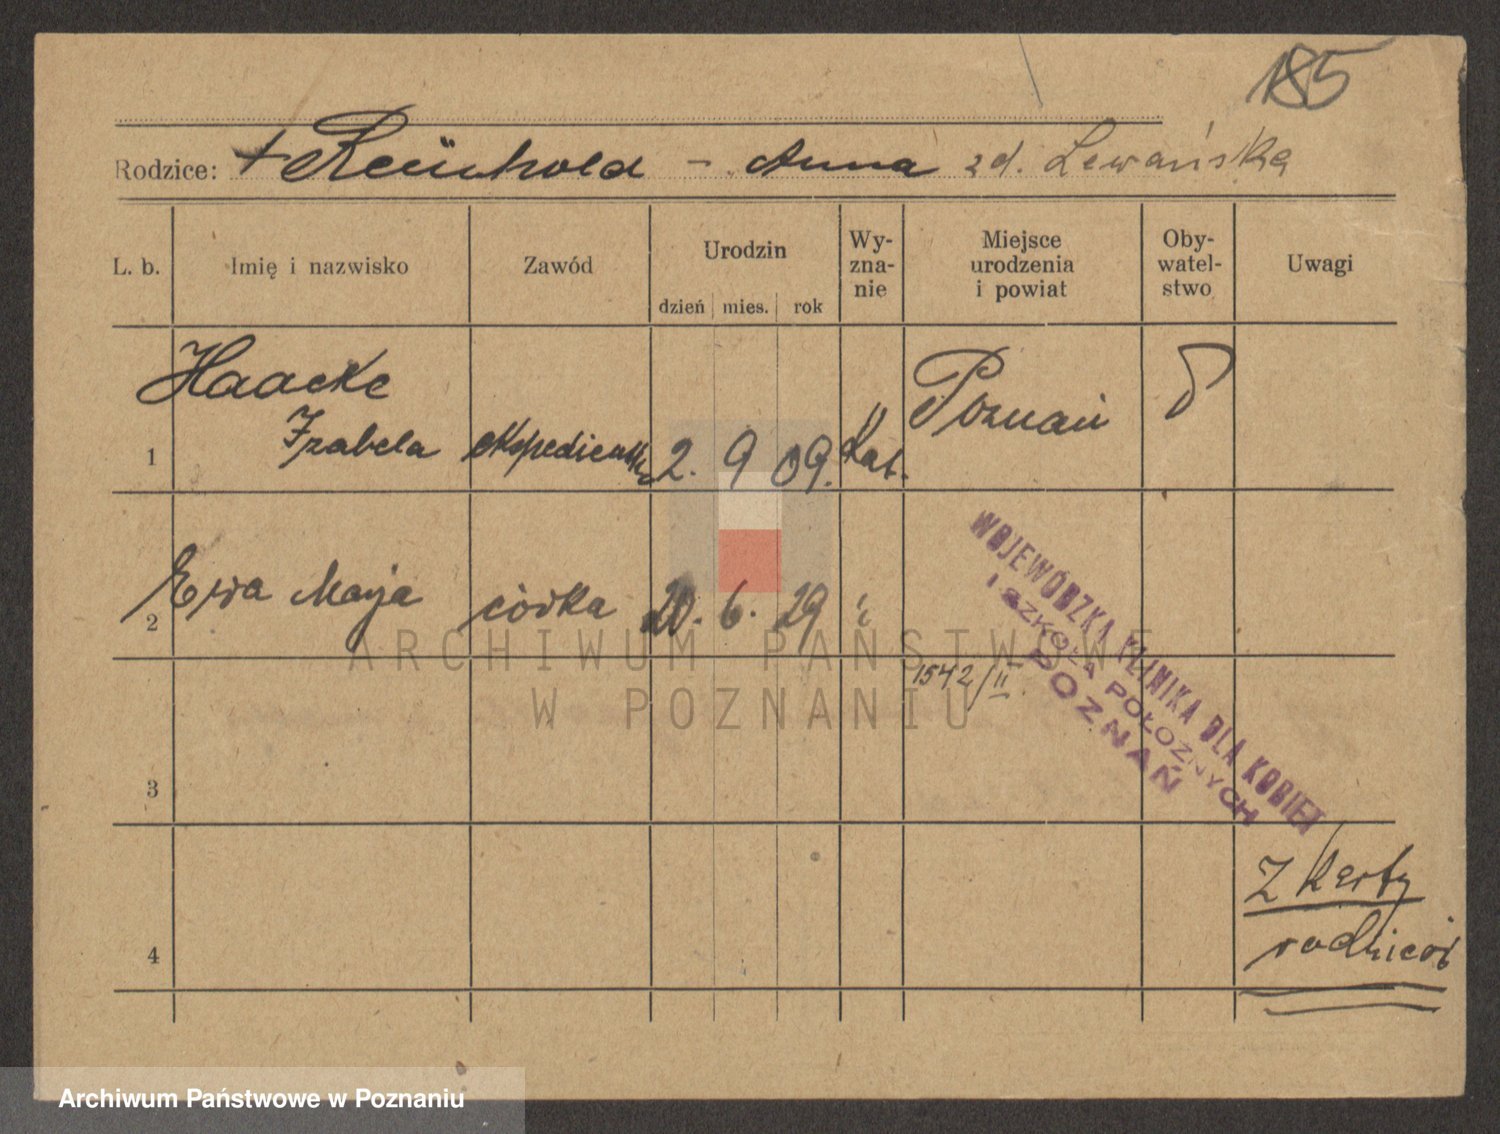 185
Rodzice: + Reinhold - Anna zd. Lewańska
L. b. Imię i nazwisko Zawód Urodzin dzień mies. rok Wy-zna-nie Miejsce urodzenia i powiat Oby-watel-stwo Uwagi
Haacke
1 Izabela ekspedientka 2. 9 09. Kat. Poznań
2 Ewa Marja córka 20. 6. 29
WOJEWÓDZKA KLINIKA DLA KOBIET
I SZKOŁA POŁOŻNYCH
POZNAŃ
1542/II.
3
Z karty
4 rodziców
ARCHIWUM PAŃSTWOWE
W POZNANIU
Archiwum Państwowe w Poznaniu